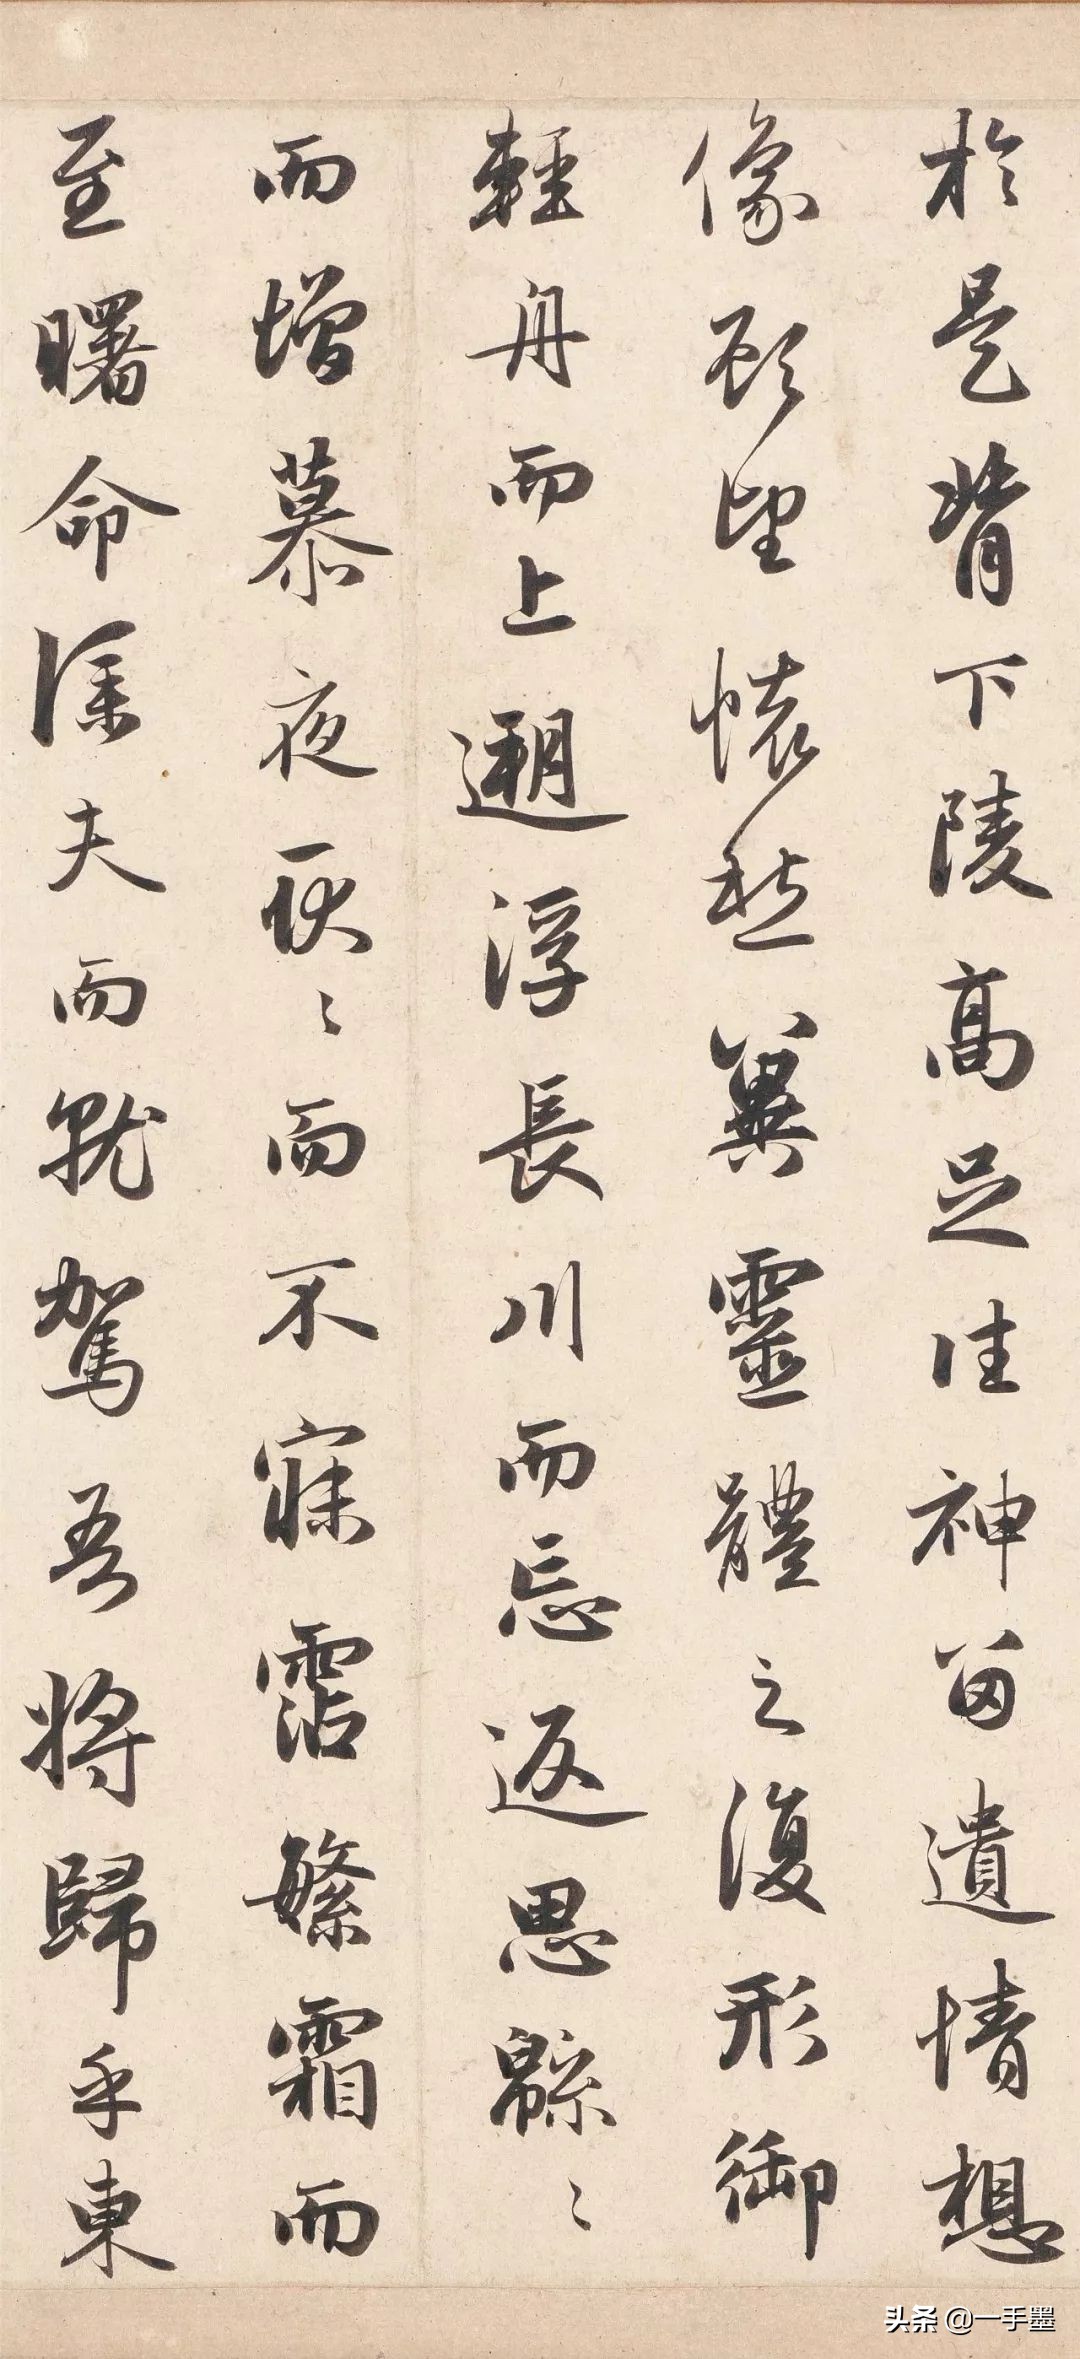 於是背下陵高足往神留遺情想
像顧望懷愁冀靈體之復形御
輕舟而上遡浮長川而忘返思緜〻
而增慕夜耿〻而不寐霑繁霜而
至曙命僕夫而就駕吾將歸乎東
头条 @一手墨